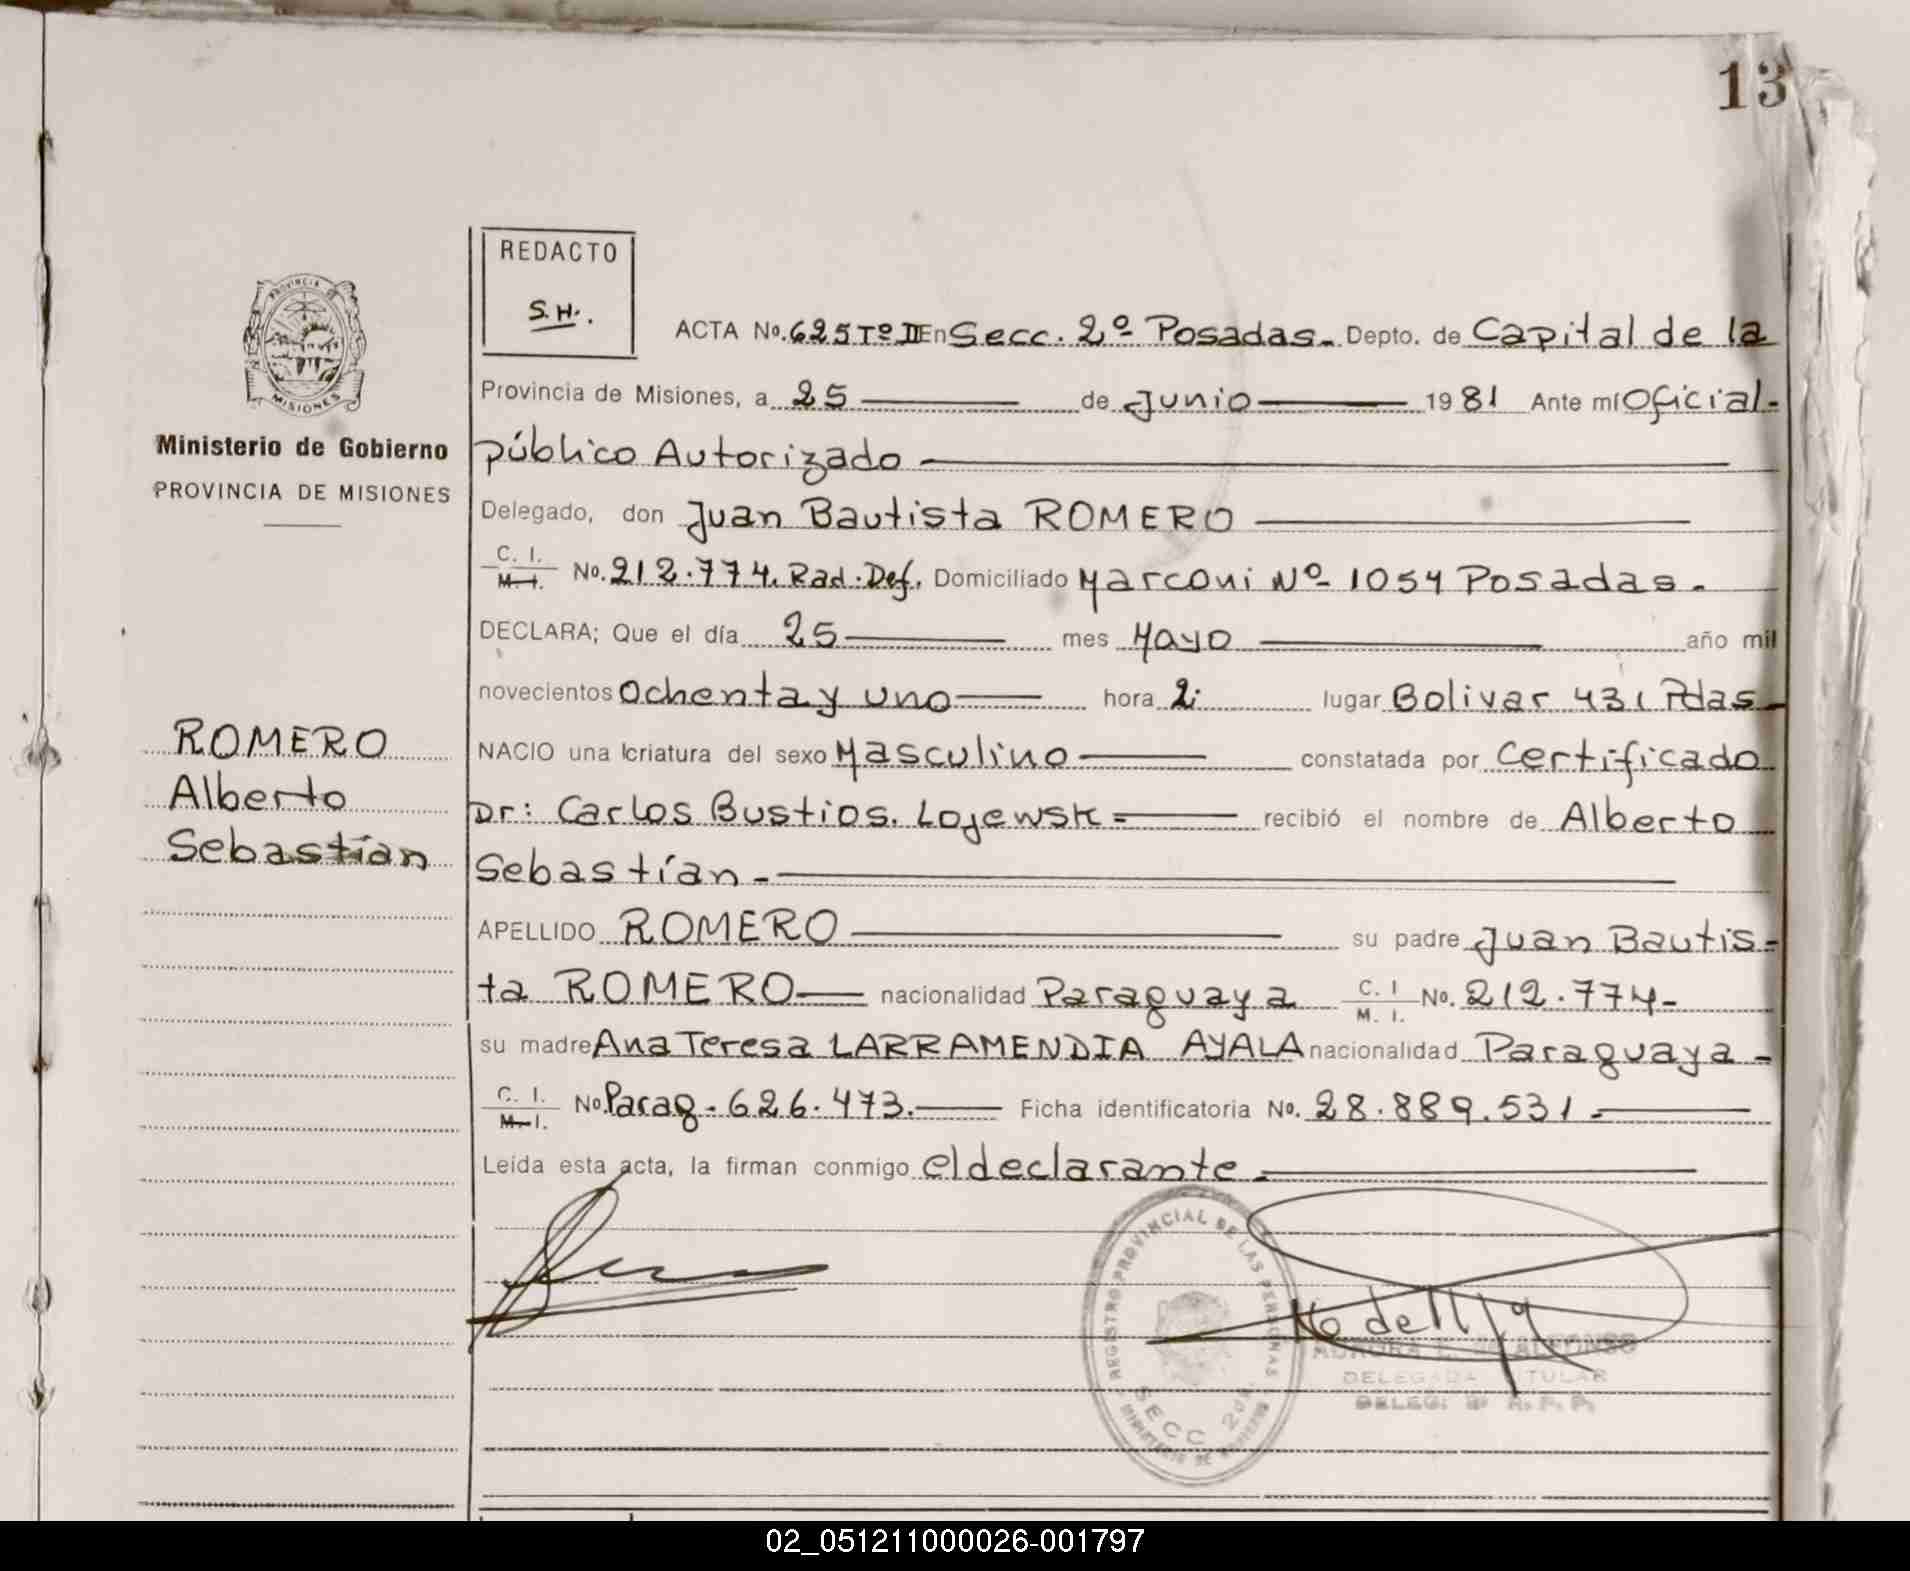 13
REDACTO
S.H.
PROVINCIA DE
MISIONES
Ministerio de Gobierno
PROVINCIA DE MISIONES
ROMERO
Alberto
Sebastían
ACTA No. 625 Tº II En Secc. 2º Posadas. Depto. de Capital de la
Provincia de Misiones, a 25 de Junio 1981 Ante mí Oficial-
público Autorizado
Delegado, don Juan Bautista ROMERO
C. I. M. I. No. 212.774. Rad. Def. Domiciliado Marconi Nº 1054 Posadas.
DECLARA; Que el día 25 mes Mayo año mil
novecientos Ochenta y uno hora 2. lugar Bolivar 431 Pdas-
NACIO una criatura del sexo Masculino constatada por Certificado
Dr: Carlos Bustios. Lojewsk- recibió el nombre de Alberto
Sebastían.-
APELLIDO ROMERO su padre Juan Bautis-
ta ROMERO nacionalidad Paraguaya C. I M. I. No. 212.774-
su madre Ana Teresa LARRAMENDIA AYALA nacionalidad Paraguaya-
C. I. M. I. No. Parag. 626.473. Ficha identificatoria No. 28.889.531.-
Leída esta acta, la firman conmigo el declarante.
REGISTRO PROVINCIAL DE LAS PERSONAS
SECC 2da.
AURORA E. DE ALFONSO
DELEGADA TITULAR
02_051211000026-001797